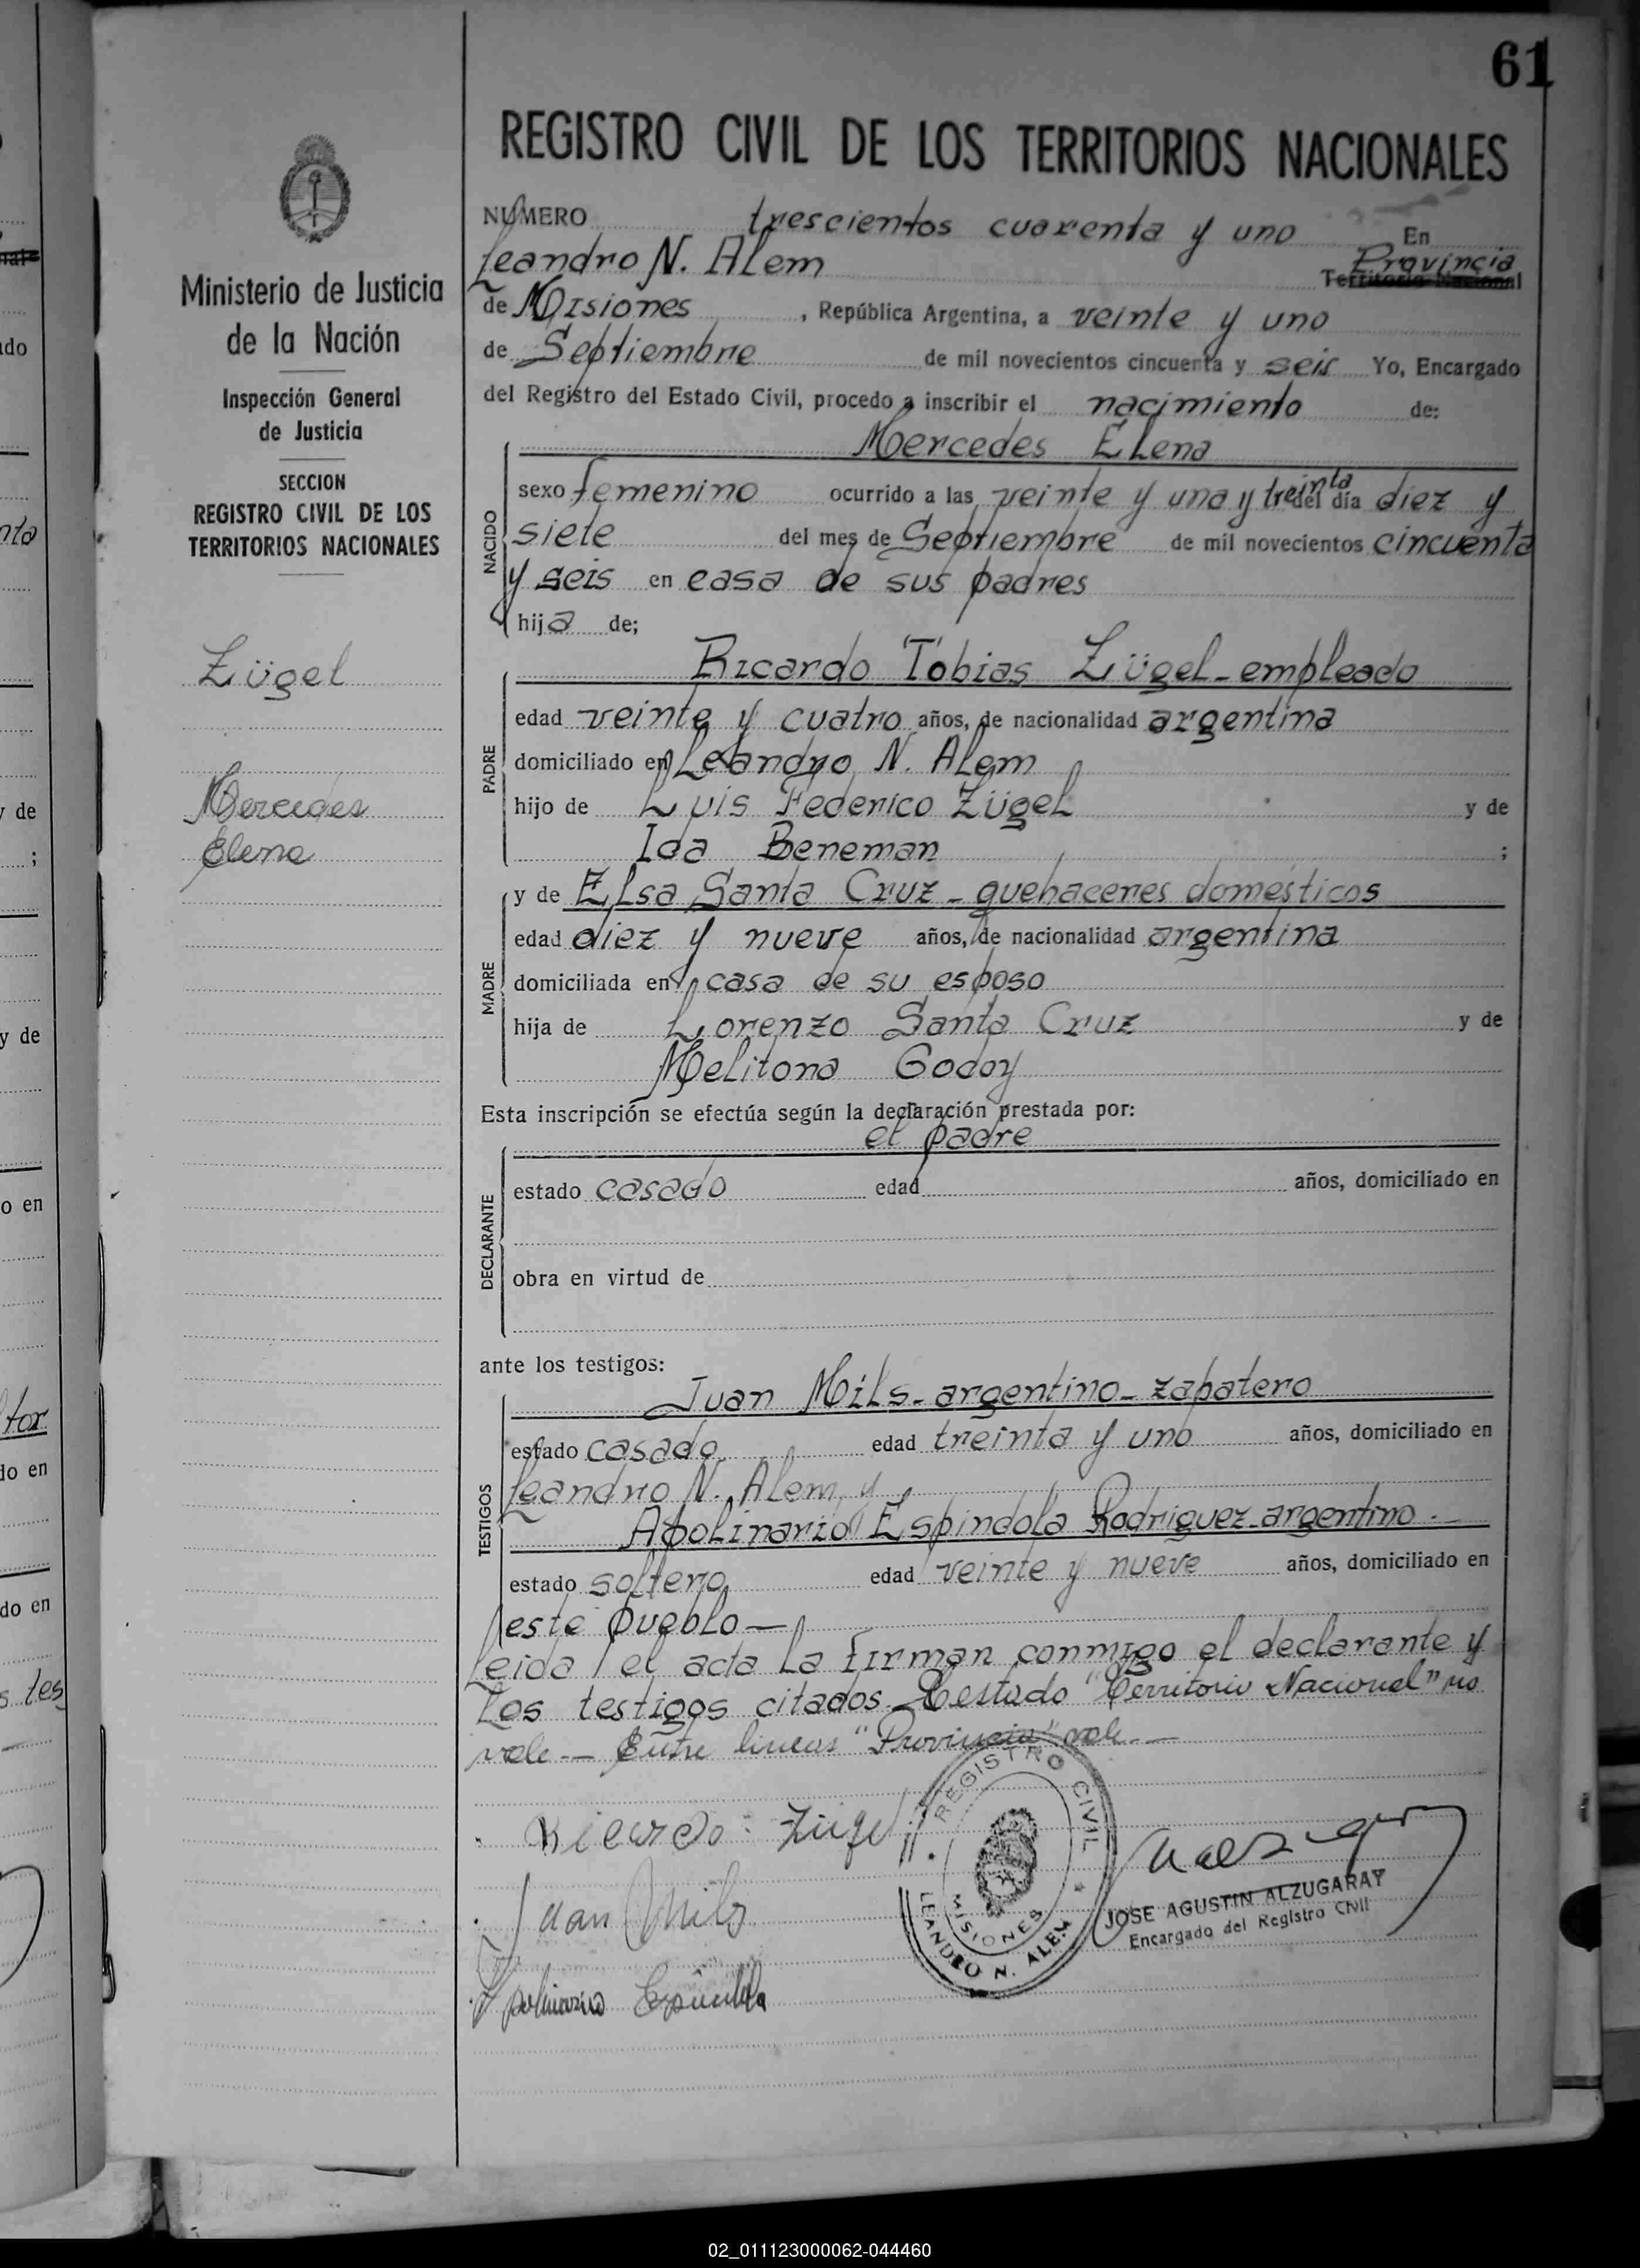 61
REGISTRO CIVIL DE LOS TERRITORIOS NACIONALES
Ministerio de Justicia
de la Nación
Inspección General
de Justicia
SECCION
REGISTRO CIVIL DE LOS
TERRITORIOS NACIONALES
Zügel
Mercedes
Elena
NUMERO trescientos cuarenta y uno En
Leandro N. Alem Provincia
Territorio Nacional
de Misiones, República Argentina, a veinte y uno
de Septiembre de mil novecientos cincuenta y seis Yo, Encargado
del Registro del Estado Civil, procedo a inscribir el nacimiento de:
Mercedes Elena
NACIDO
sexo femenino ocurrido a las veinte y una y treinta del día diez y
siete del mes de Septiembre de mil novecientos cincuenta
y seis en casa de sus padres
hija de;
Ricardo Tobias Zügel - empleado
PADRE
edad veinte y cuatro años, de nacionalidad argentina
domiciliado en Leandro N. Alem
hijo de Luis Federico Zügel y de
Ida Beneman ;
y de Elsa Santa Cruz - quehaceres domésticos
MADRE
edad diez y nueve años, de nacionalidad argentina
domiciliada en casa de su esposo
hija de Lorenzo Santa Cruz y de
Melitona Godoy
Esta inscripción se efectúa según la declaración prestada por:
el padre
DECLARANTE
estado casado edad años, domiciliado en
obra en virtud de
ante los testigos:
Juan Mils - argentino - zapatero
TESTIGOS
estado casado edad treinta y uno años, domiciliado en
Leandro N. Alem, y
Apolinario Espindola Rodriguez - argentino. -
estado soltero edad veinte y nueve años, domiciliado en
este pueblo —
Leida el acta la firman conmigo el declarante y
los testigos citados. Testado "Territorio Nacional" no
vale — Entre lineas "Provincia" vale. —
Ricardo Zügel
REGISTRO CIVIL
MISIONES
LEANDRO N. ALEM
Juan Mils
JOSE AGUSTIN ALZUGARAY
Encargado del Registro Civil
Apolinario Espindola
nta
y de
;
y de
o en
tor
do en
do en
s tes
02_011123000062-044460